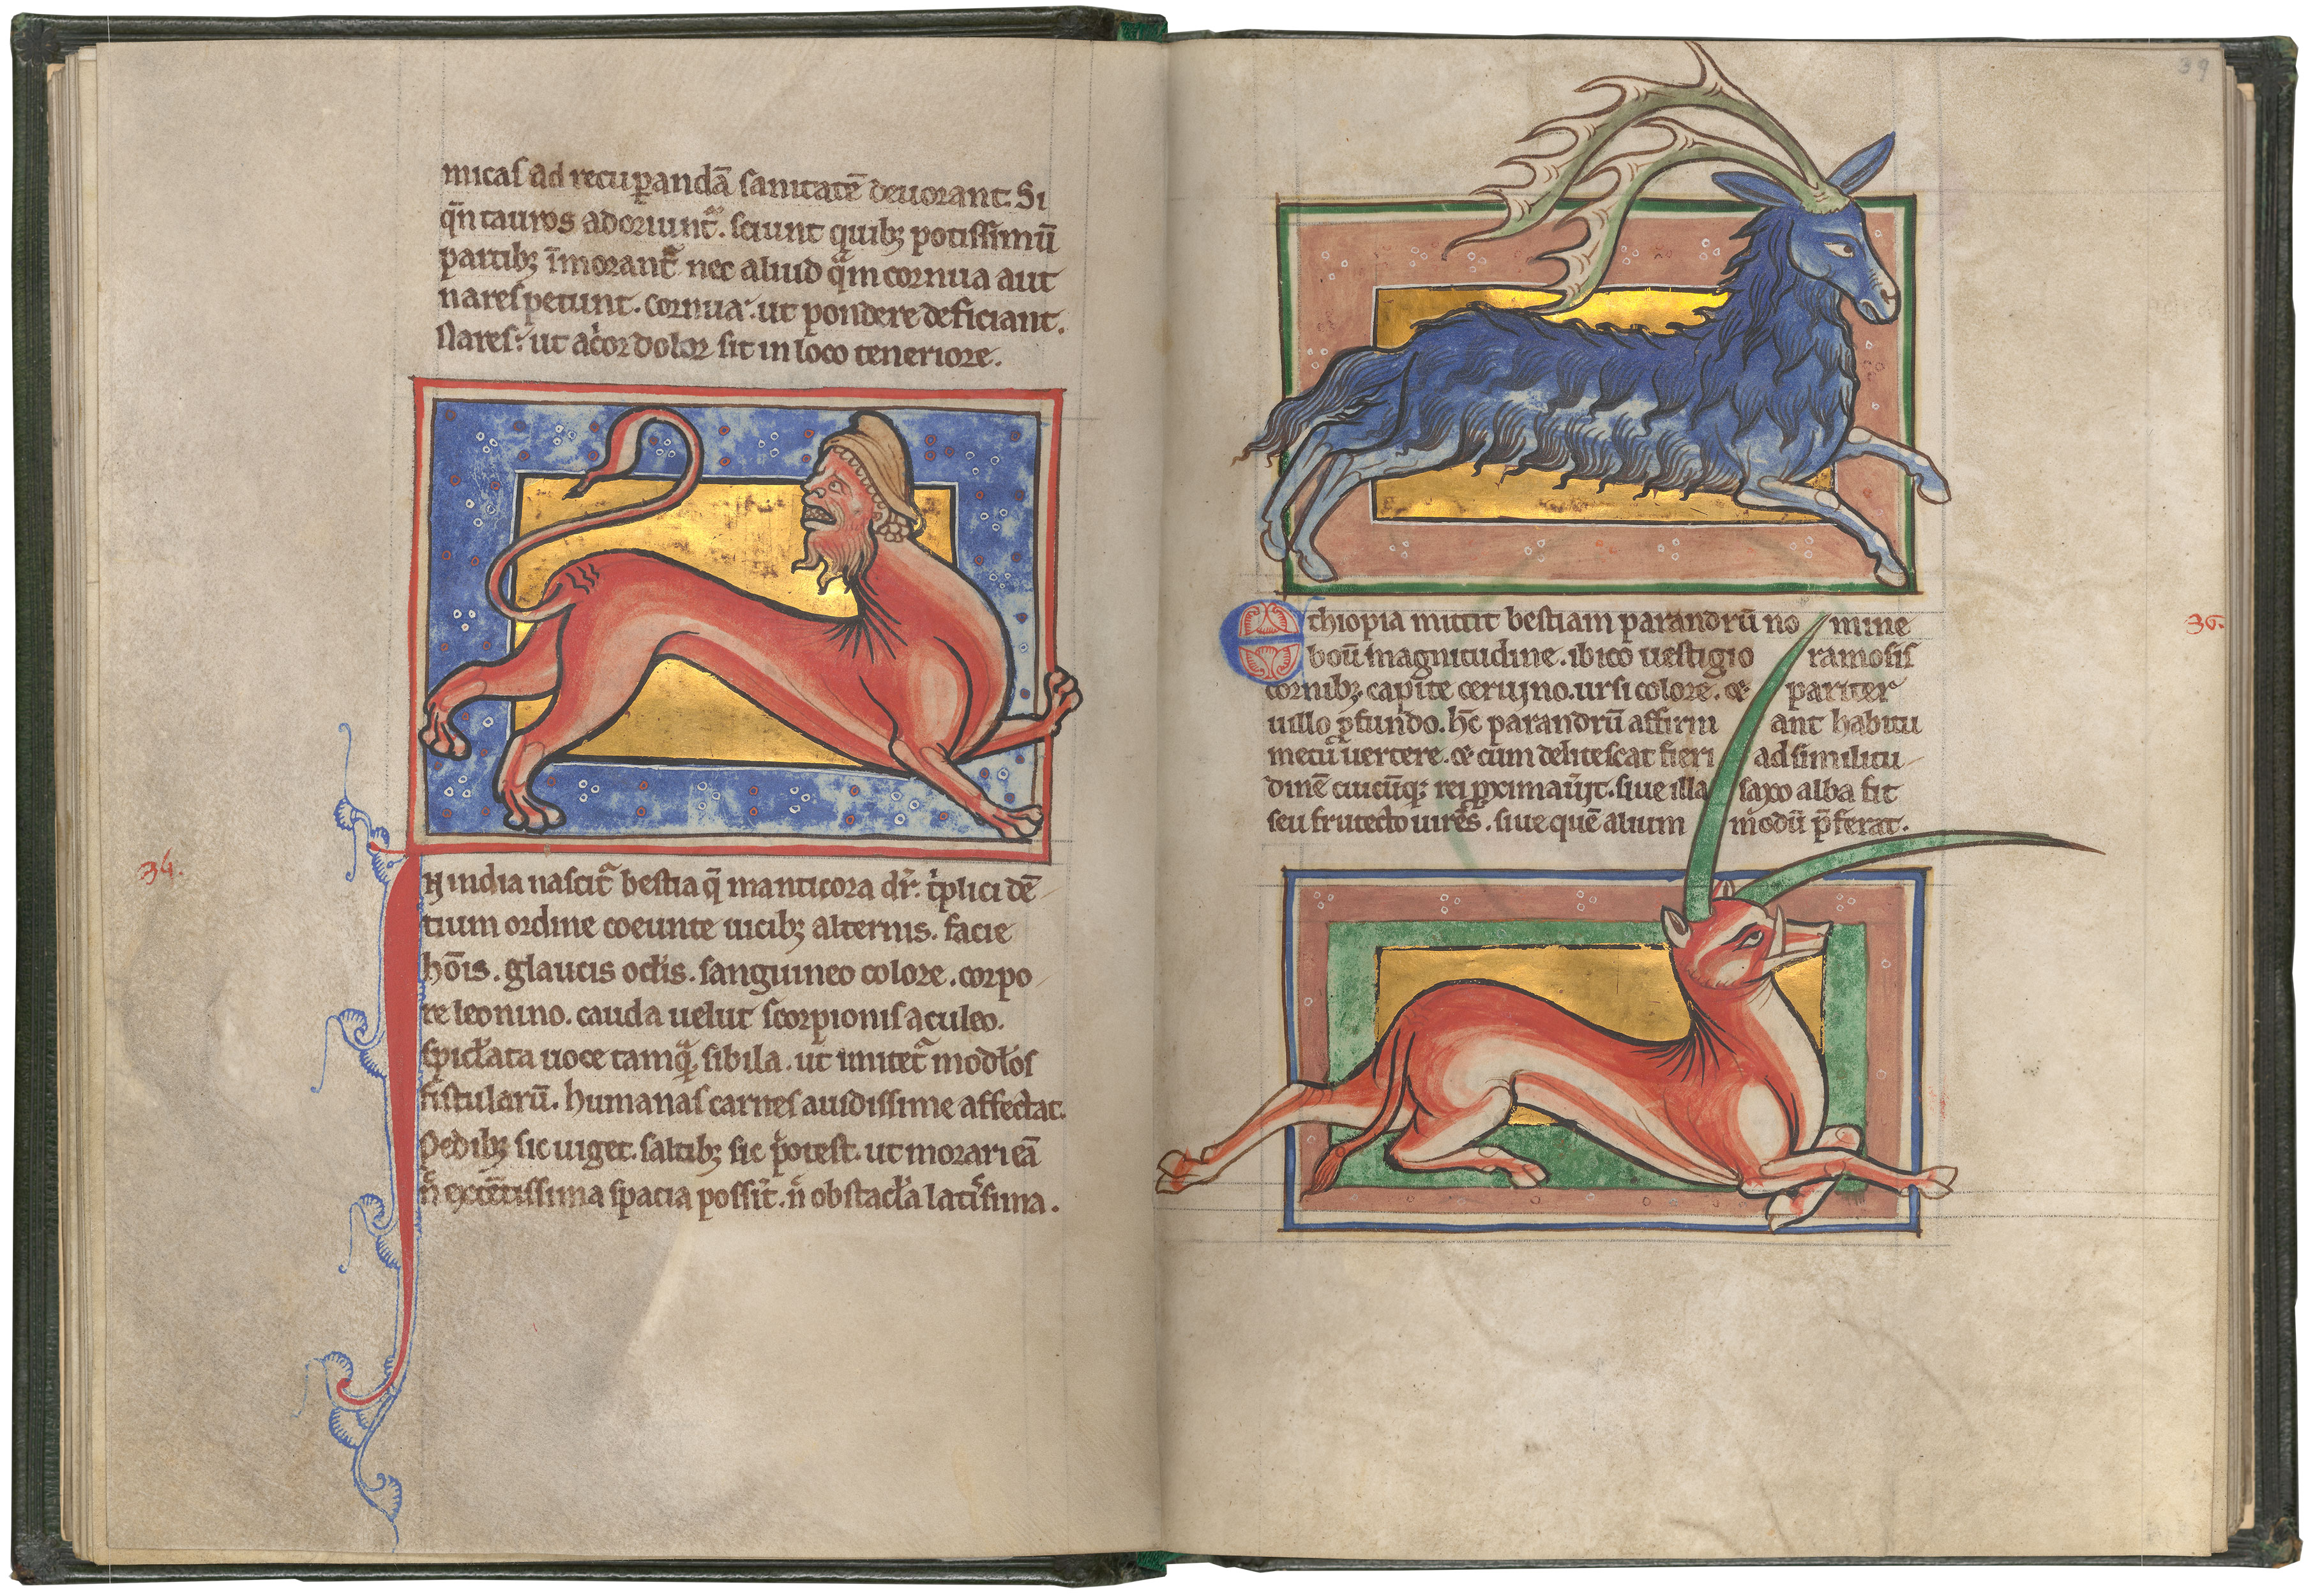 micaſ ad recuꝑandā ſanitatē deuorant. Si
qn̄ tauros adoriunt᷑. ſciunt quibꝫ potiſſimū
partibꝫ īmorant᷑ nec aliud qͣm cornua aut
nareſ petunt. cornua: ut pondere deficiant.
Nareſ: ut acͥor dolor ſit in loco teneriore.
34.
IN india naſcit᷑ beſtia q̄ manticora dr̄. tͥplici dē
tium ordine coeunte uicibꝫ alternis. facie
hōis. glaucis oclīs. ſanguineo colore. corpo
re leonino. cauda uelut ſcorpioniſ aculeo
ſpicl̄ata uoce tamqͣ ſibila. ut imitet᷑ modl̄os
fiſtularū. humanaſ carneſ auidiſſime affectat.
Pedibꝫ ſic uiget. ſaltibꝫ ſic p̄oteſt. ut morari eā
nͨ extētiſſima ſpacia poſſīt. nͨ obſtacl̄a latiſſima.
39
Ethiopia mittit beſtiam parandrū no mine
boū magnitudine. ibico ueſtigio ramoſiſ
cornibꝫ capite ceruino. urſi colore. et pariter
uillo ꝓfundo. hc̄ parandrū affirm ant habitū
metu uertere. et cum deliteſcat fieri ad ſimilitu
dinē cuicūqꝫ rei ꝓximauīt. ſiue illa ſaxo alba ſit
ſeu frutecto uirēs. ſiue quē alium modū p̄ferat.
36.